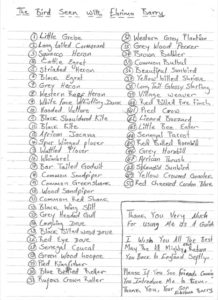 The Bird Seen with Ebrima Barry
① Little Grebe
② Long tailed Cormorant
③ Squacco Heron
④ Cattle Egret
⑤ Striated Heron
⑥ Black Egret
⑦ Grey Heron
⑧ Western Reef Heron
⑨ White Face Whistling Duck
⑩ Hooded Vulture
⑪ Black Shouldered Kite
⑫ Black Kite
⑬ African Jacana
⑭ Spur Winged Plover
⑮ Wattled Plover
⑯ Whimbrel
⑰ Bar Tailed Godwit
⑱ Common Sandpiper
⑲ Common Greenshank
⑳ Wood Sandpiper
Common Red Shank
Black Wing Stilt
Grey Headed Gull
Laughing Dove
Black billed wood dove
Red Eye Dove
Senegal Coucal
Green Wood hoopoe
Pied Kingfisher
Blue Bellied Roller
Rufous Crown Roller
Western Grey Plantain
Grey Wood Pecker
Brown Babbler
Common Bulbul
Beautiful Sunbird
Yellow billed Shrike
Long Tail Glossy Starling
Village Weaver
Red Billed Fire Finch
Pied Crow
Lizard Barbard
Little Bee Eater
Senegal Parrot
Red Billed Hornbill
Grey Hornbill
African Thrush
Splendid Sunbird
Yellow Crowned Gonolek
Red Cheeked Cordon Blue
Thank You Very Much
For Using Me As A Guide
I Wish You All The Best
May The All Mighty Return
You Back To England Safely
Please If You See Friends Can
You Introduce Me To Them.
Thank You, Ebrima Barry